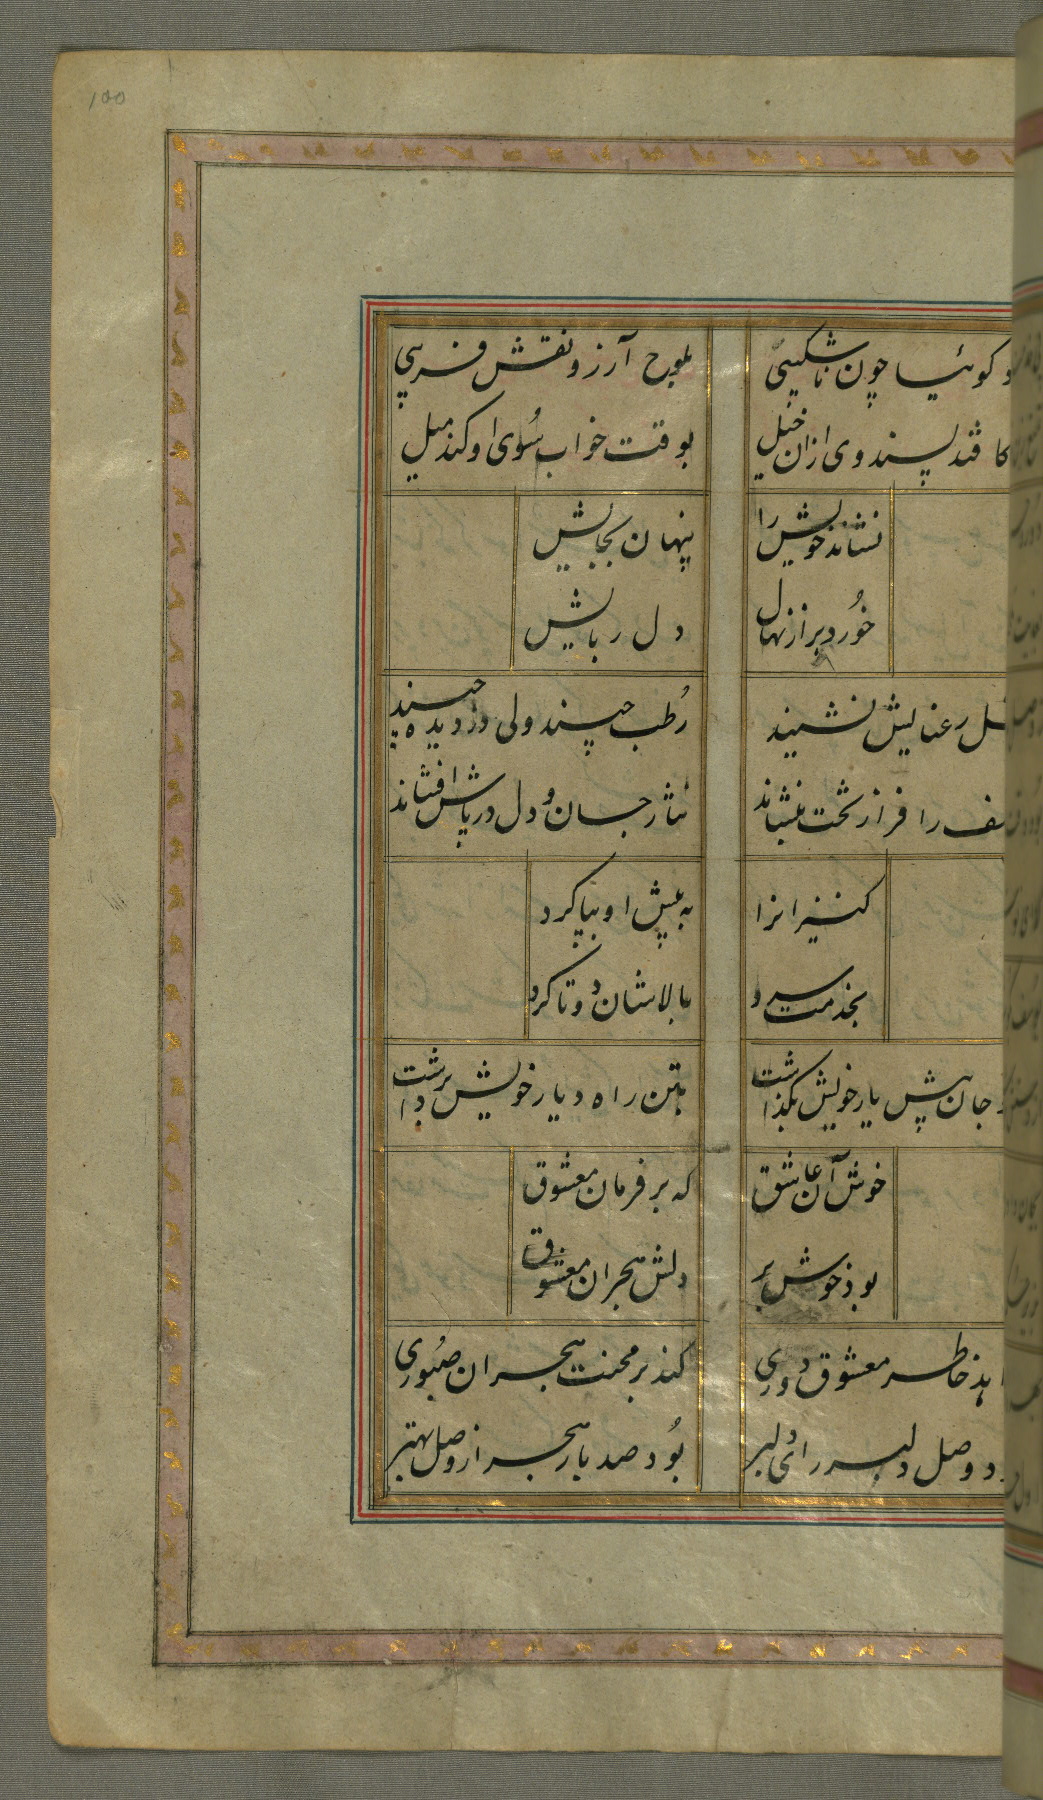 ۱۵۵
کوئیا چون ناشکیبی
بلوح آرزو نقش فریبی
کافتد پسند وی ازان خیل
بوقت خواب سوی او کند میل
نشاند خویش را
پنهان بجایش
خورد بر از نهال
دل ربایش
رعنایش نشیند
رطب چیند ولی دزدیده چیند
را فراز تخت بنشاند
نثار جان و دل در پاش افشاند
کنیزانرا
به پیش او بپا کرد
بخدمت سرو
بالاشان دوتا کرد
جان پیش یار خویش بگذاشت
بتن راه دیار خویش برداشت
خوش آن عاشق
که بر فرمان معشوق
بود خوش بر
دلش هجران معشوق
خاطر معشوق دوری
کند بر محنت هجران صبوری
وصل دلبر رای دلبر
بود صد بار هجر از وصل بهتر